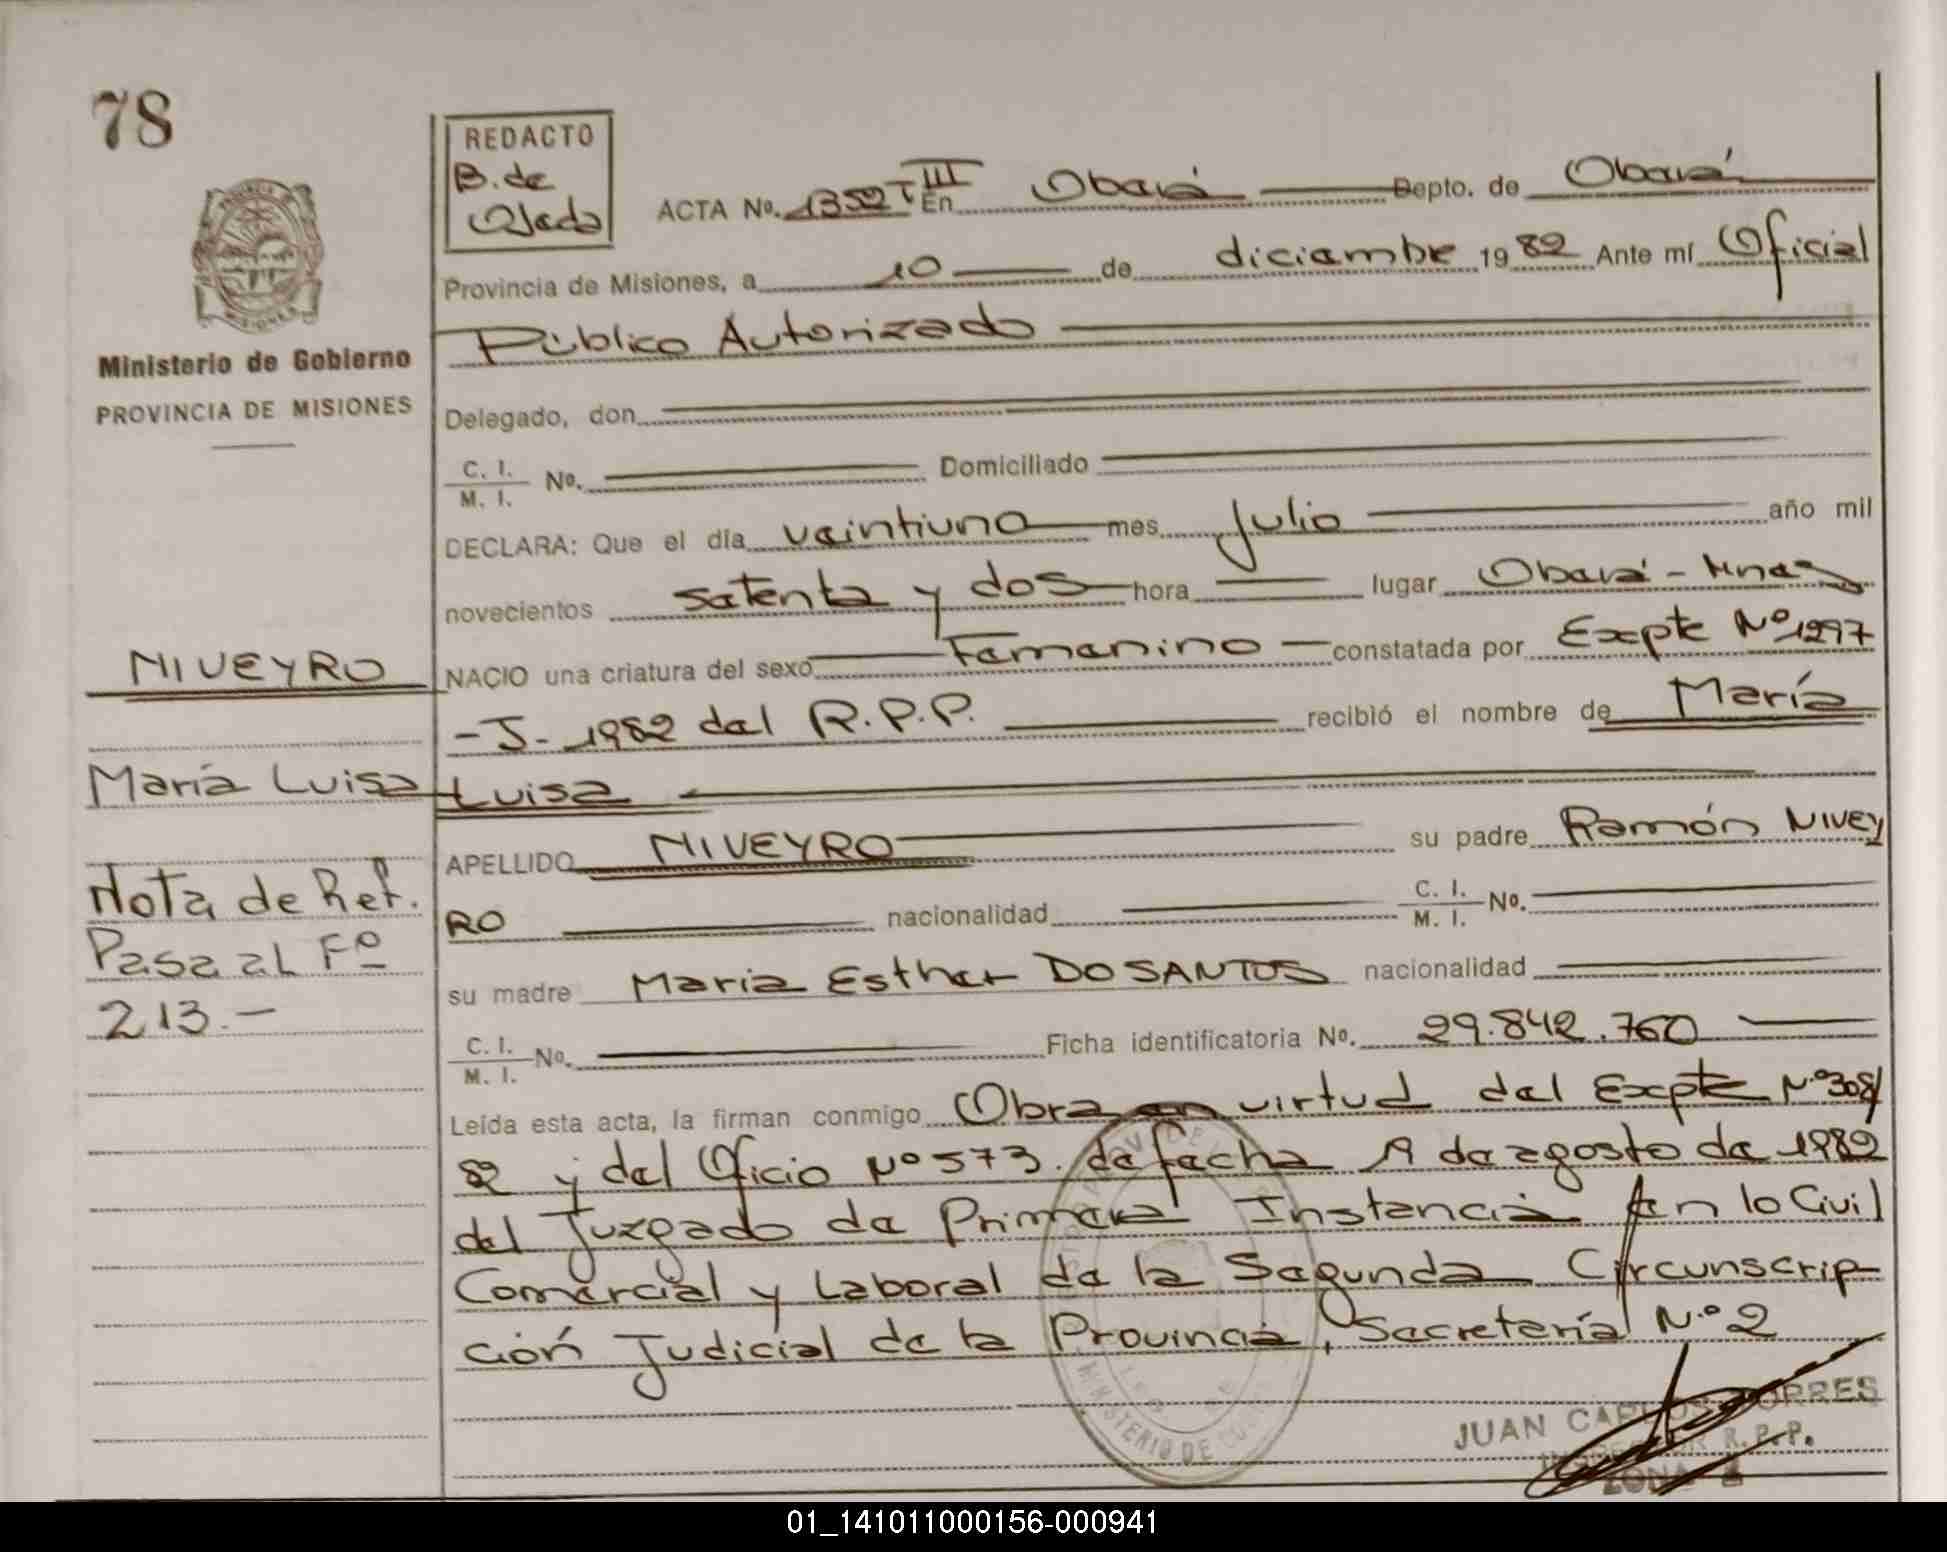 78
REDACTO
B. de
Ojeda
ACTA No. 1352 T III En Oberá Depto. de Oberá
Provincia de Misiones, a 10 de diciembre 1982 Ante mí Oficial
Público Autorizado
Delegado, don
C. I.
M. I. No. Domiciliado
DECLARA: Que el día veintiuno mes Julio año mil
novecientos setenta y dos hora lugar Oberá - Mnes
NACIO una criatura del sexo Femenino constatada por Expte Nº 1297
- J - 1982 del R.P.P. recibió el nombre de María
Luisa
APELLIDO NIVEYRO su padre Ramón NIVEY
RO nacionalidad C. I.
M. I. No.
su madre Maria Esther DOSANTOS nacionalidad
C. I.
M. I. No. Ficha identificatoria No. 29.842.760
Leída esta acta, la firman conmigo Obra en virtud del Expte Nº 308/
82 y del Oficio Nº 573. de fecha 19 de agosto de 1982
del Juzgado de Primera Instancia en lo Civil
Comercial y Laboral de la Segunda Circunscrip
ción Judicial de la Provincia, Secretería Nº 2
JUAN CARLOS TORRES
INSPECTOR R.P.P.
ZONA
PROVINCIA
MISIONES
Ministerio de Gobierno
PROVINCIA DE MISIONES
NIVEYRO
María Luisa
Nota de Ref.
Pasa al Fº
213.-
MINISTERIO DE
01_141011000156-000941